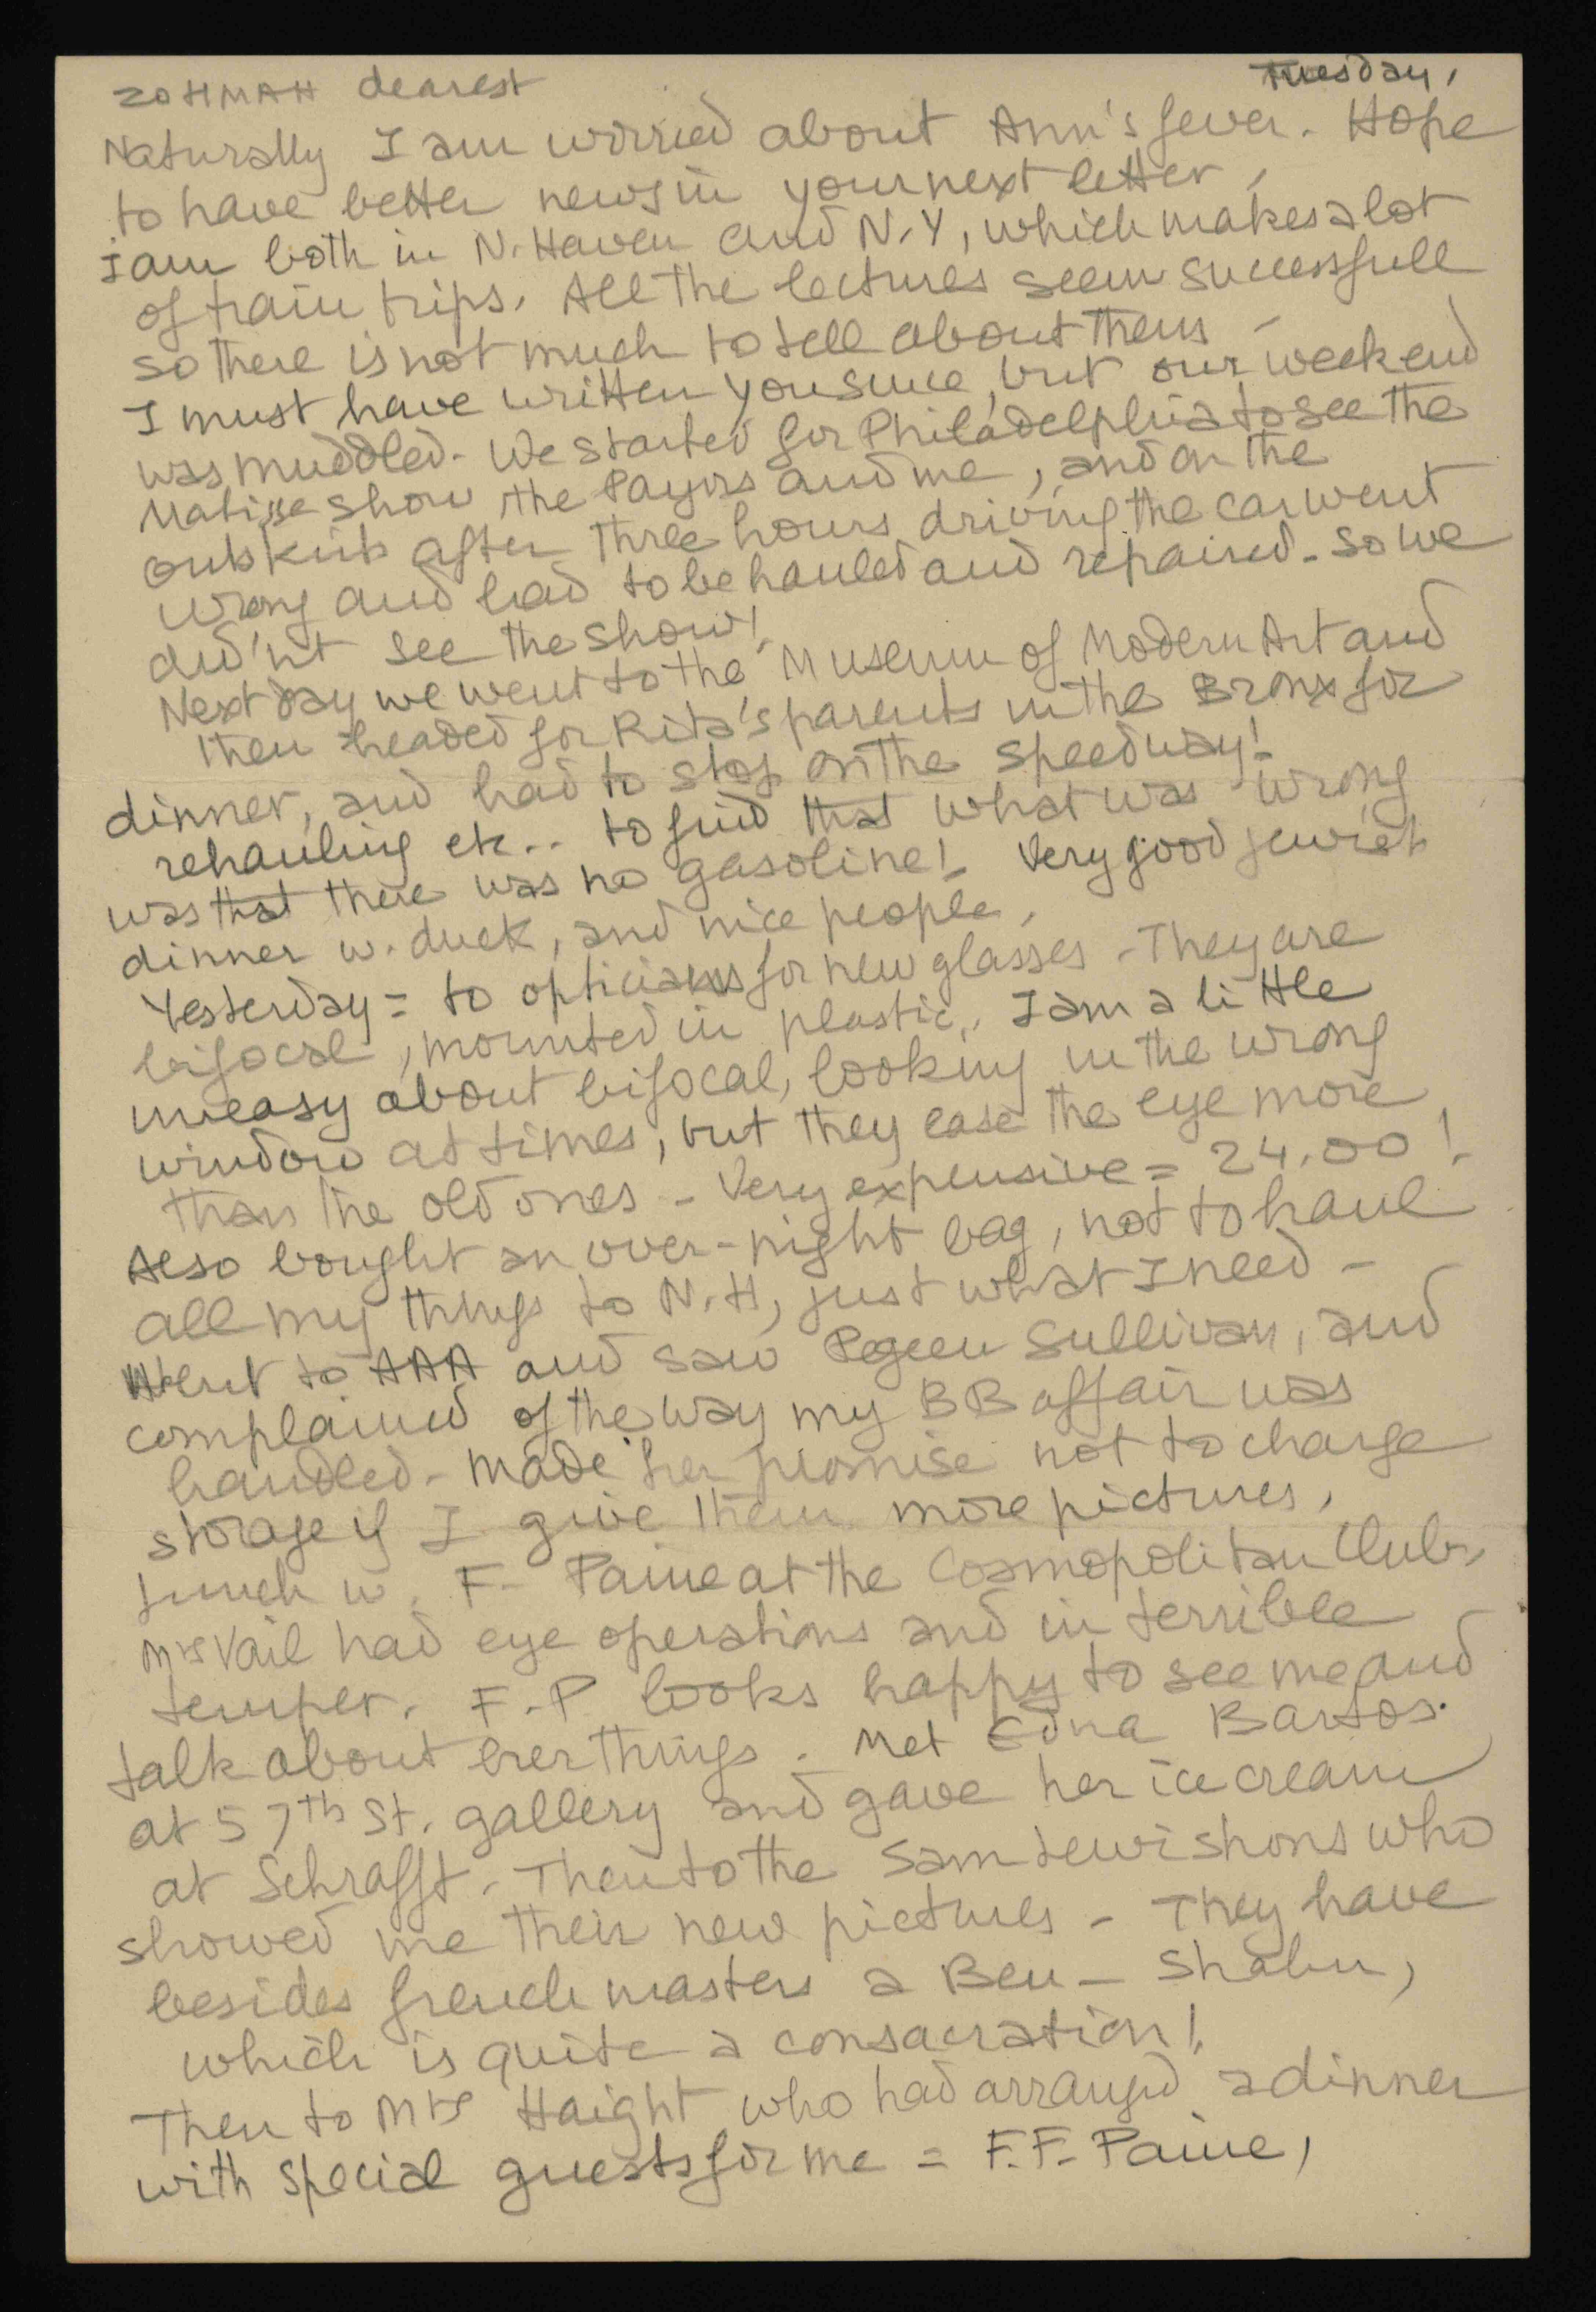 ZOHMAH dearest
Tuesday,
Naturally I am worried about Ann's fever. Hope
to have better news in your next letter,
I am both in N. Haven and N.Y, which makes a lot
of train trips. All the lectures seem successfull
so there is not much to tell about them -
I must have written you since, but our weekend
was muddled. We started for Philadelphia to see the
Matisse show, the Payors and me, and on the
outskirts after three hours driving the car went
wrong and had to be hauled and repaired. So we
did'nt see the show!
Next day we went to the Museum of Modern Art and
then headed for Rita's parents in the Bronx for
dinner, and had to stop on the speedway!
rehauling etc.. to find that what was wrong
was that there was no gasoline! Very good jewish
dinner w. duck, and nice people.
Yesterday = to opticians for new glasses - They are
bifocal, mounted in plastic. I am a little
uneasy about bifocal, looking in the wrong
window at times, but they ease the eye more
than the old ones - Very expensive = 24.00!
Also bought an over-night bag, not to haul
all my things to N.H, just what I need -
Went to AAA and saw Pegeen Sullivan, and
complained of the way my BB affair was
handled - made her promise not to charge
storage if I give them more pictures.
Lunch w. F. Paine at the Cosmopolitan Club.
Mrs Vail had eye operations and in terrible
temper. F.P looks happy to see me and
talk about her things. Met Edna Bartos
at 57th St. gallery and gave her ice cream
at Schrafft. Then to the Sam Lewishons who
showed me their new pictures - They have
besides french masters a Ben-Shahn,
which is quite a consacration!
Then to Mrs Haight who had arranged a dinner
with special guests for me = F.F. Paine,